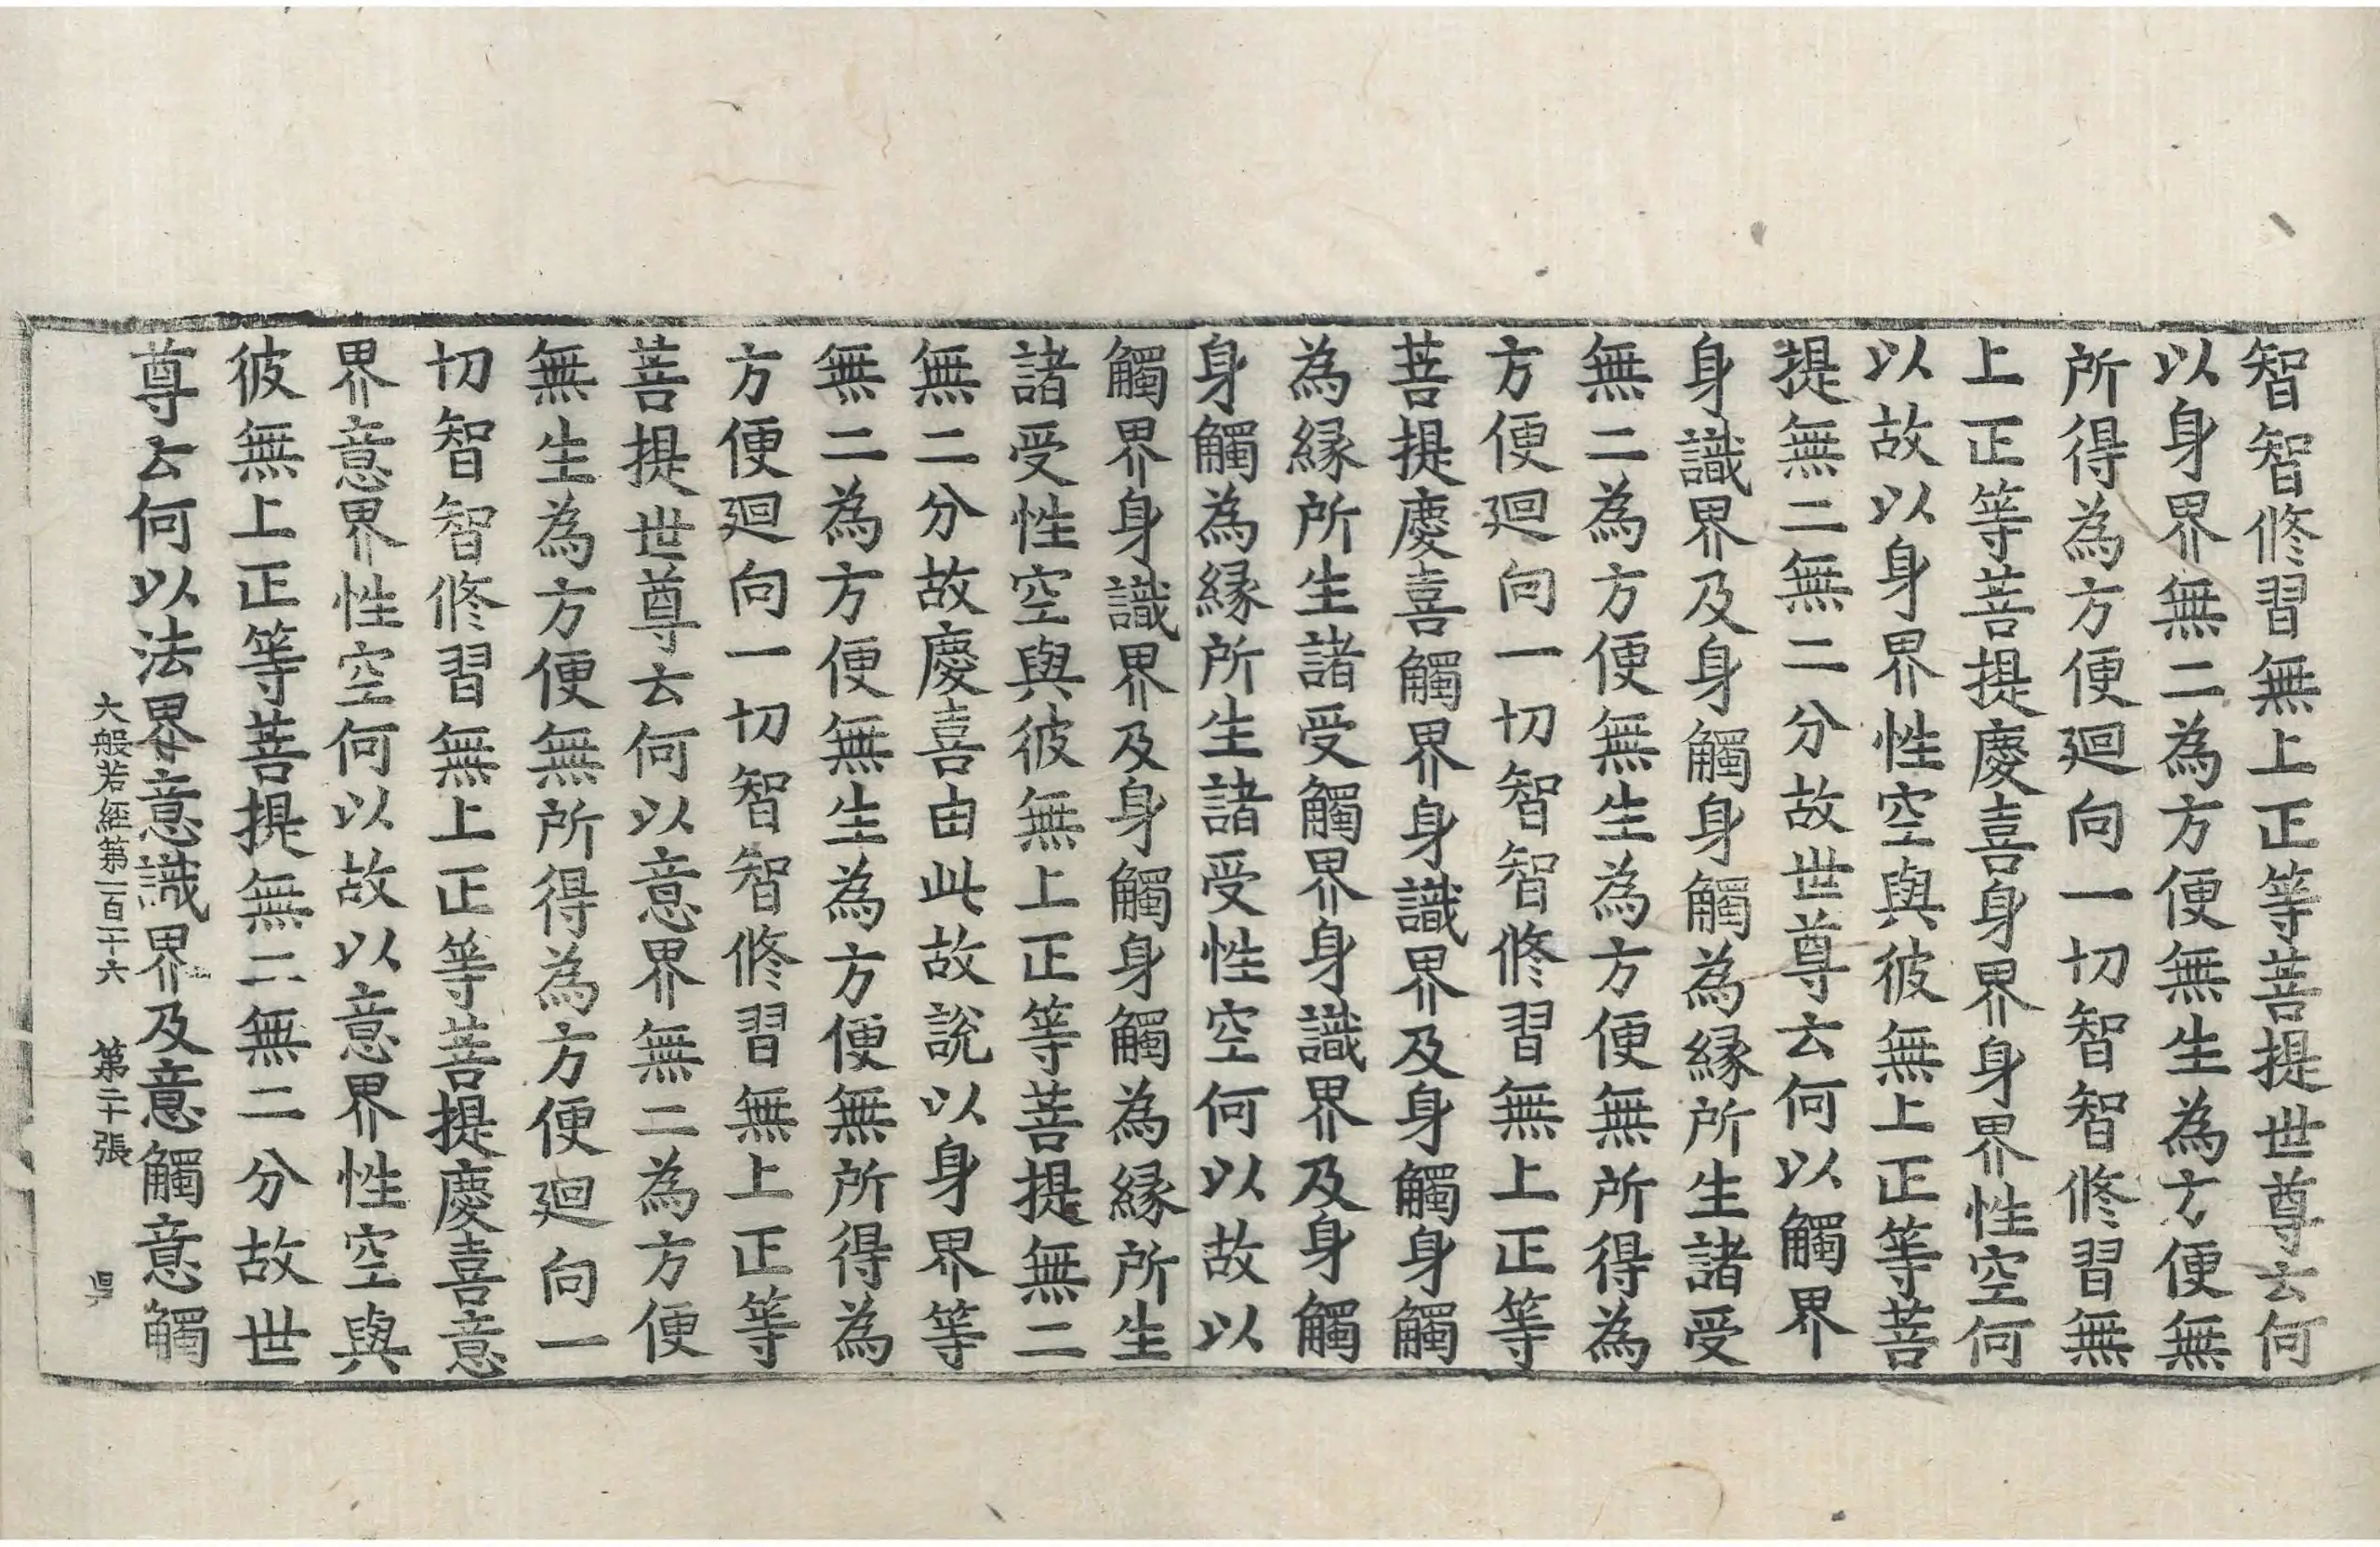 智智修習無上正等菩提世尊云何
以身界無二為方便無生為方便無
所得為方便廻向一切智智修習無
上正等菩提慶喜身界身界性空何
以故以身界性空與彼無上正等菩
提無二無二分故世尊云何以觸界
身識界及身觸身觸為緣所生諸受
無二為方便無生為方便無所得為
方便廻向一切智智修習無上正等
菩提慶喜觸界身識界及身觸身觸
為緣所生諸受觸界身識界及身觸
身觸為緣所生諸受性空何以故以
觸界身識界及身觸身觸為緣所生
諸受性空與彼無上正等菩提無二
無二分故慶喜由此故說以身界等
無二為方便無生為方便無所得為
方便廻向一切智智修習無上正等
菩提世尊云何以意界無二為方便
無生為方便無所得為方便廻向一
切智智修習無上正等菩提慶喜意
界意界性空何以故以意界性空與
彼無上正等菩提無二無二分故世
尊云何以法界意識界及意觸意觸
大般若経第一百二十六 第二十張